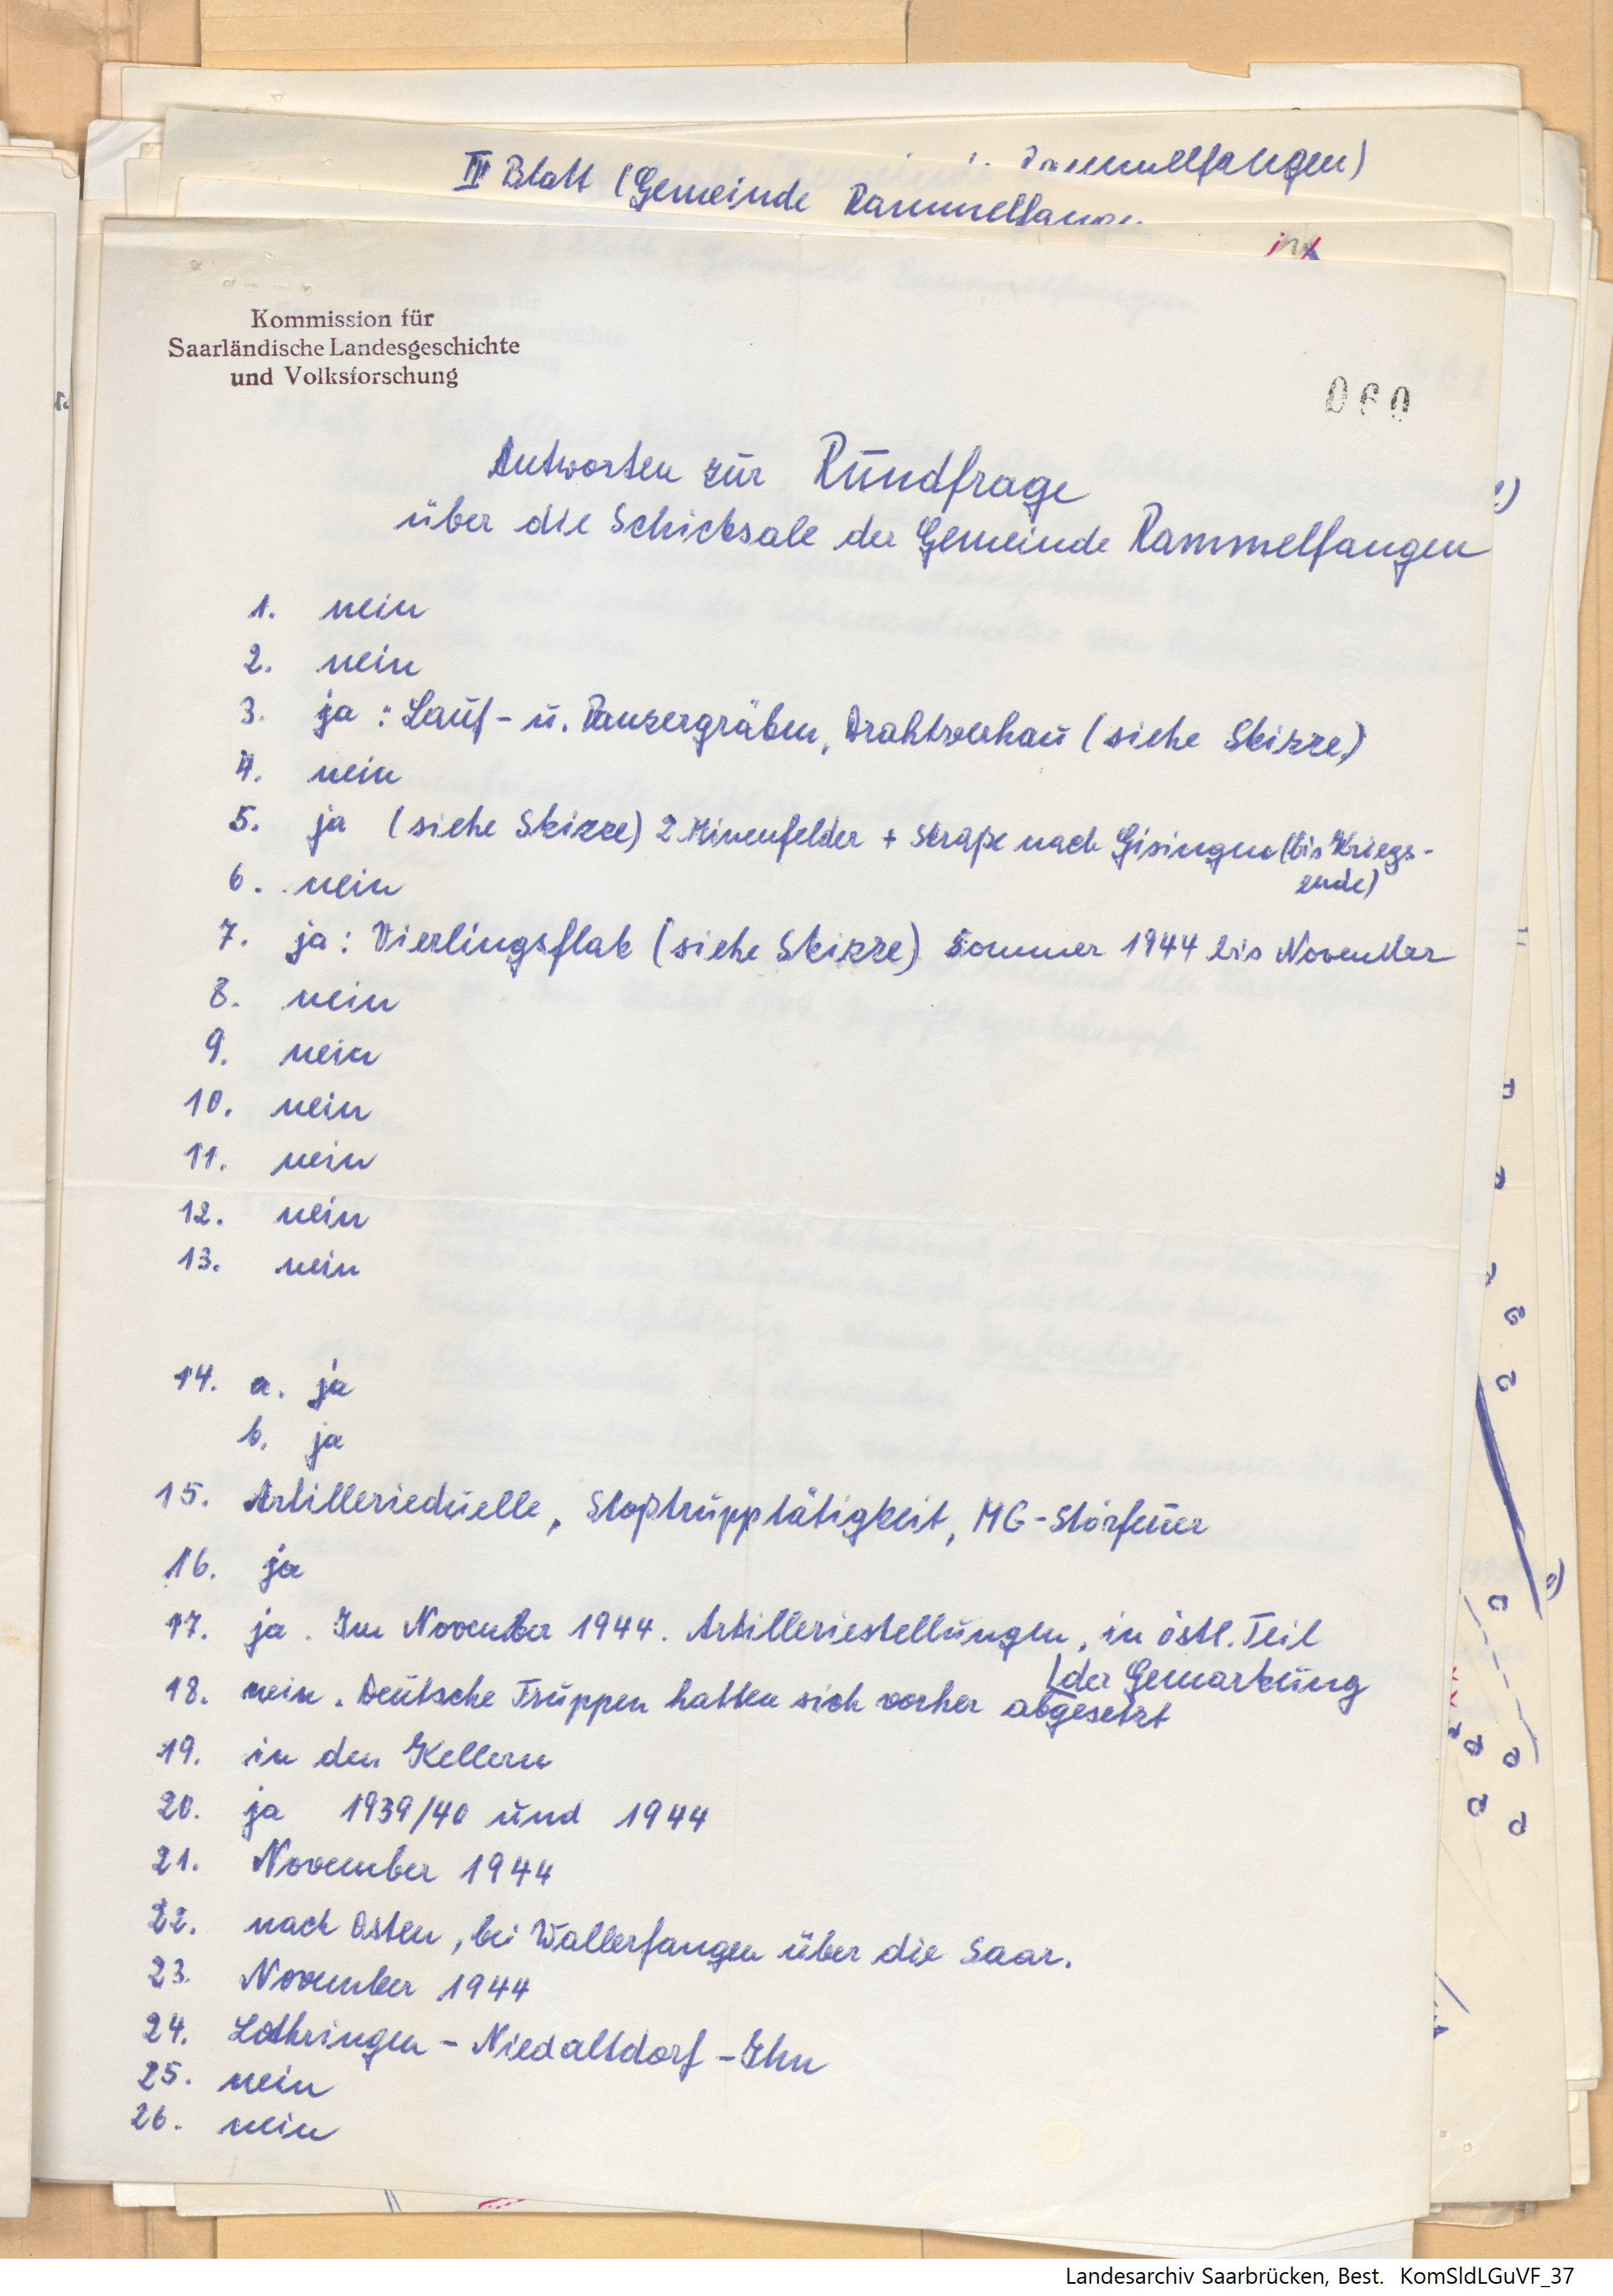 Rammelfangen)
III Blatt (Gemeinde Rammelfangen
Kommission für
Saarländische Landesgeschichte
und Volksforschung
060
Antworten zur Rundfrage
über die Schicksale der Gemeinde Rammelfangen
1. nein
2. nein
3. ja : Lauf- u. Panzergräben, Drahtverhau (siehe Skizze)
4. nein
5. ja (siehe Skizze) 2 Minenfelder + Straße nach Gisingen (bis Kriegs-
ende)
6. nein
7. ja : Vierlingsflak (siehe Skizze) Sommer 1944 bis November
8. nein
9. nein
10. nein
11. nein
12. nein
13. nein
14. a. ja
b. ja
15. Artillerieduelle, Stoßtrupptätigkeit, MG-Störfeuer
16. ja
17. ja. Im November 1944. Artilleriestellungen, in östl. Teil
(der Gemarkung
18. nein. Deutsche Truppen hatten sich vorher abgesetzt
19. in den Kellern
20. ja 1939/40 und 1944
21. November 1944
22. nach Osten, bei Wallerfangen über die Saar.
23. November 1944
24. Lothringen - Niedaltdorf - Ihn
25. nein
26. nein
Landesarchiv Saarbrücken, Best. KomSldLGuVF_37